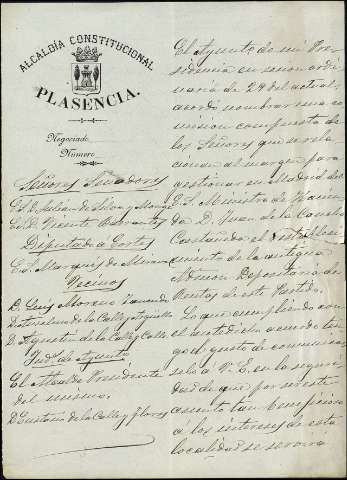 ALCALDÍA CONSTITUCIONAL
PLASENCIA.
Negociado
Número
Señores Senadores
D. Julian de Silva y
D. Vicente Barrantes
Diputado a Cortes
Marqués de
Vecinos
D. Luis Moreno
de la Calle y
D. Agustín de la Calle y Calle
de Aynto
El Alcalde Presidente
del mismo.
D. de la Calle y Flores
El Aynto de mi Pre-
sidencia en sesion ordi-
naria de 29 del actual
acordó nombrar una co-
mision compuesta de
los Señores que se rela-
cionan al margen para
gestionar en Madrid del
Ministro de Hacien-
da D. Juan de la
el
cimiento de la antigua
Admon Depositaria de
Rentas de este Partido.
Lo que cumpliendo con
el acuerdo ten-
go el gusto de comunicar-
selo á V. E. en la seguri-
dad de que por ser este
asunto tan beneficioso
á los intereses de esta
localidad se servirá